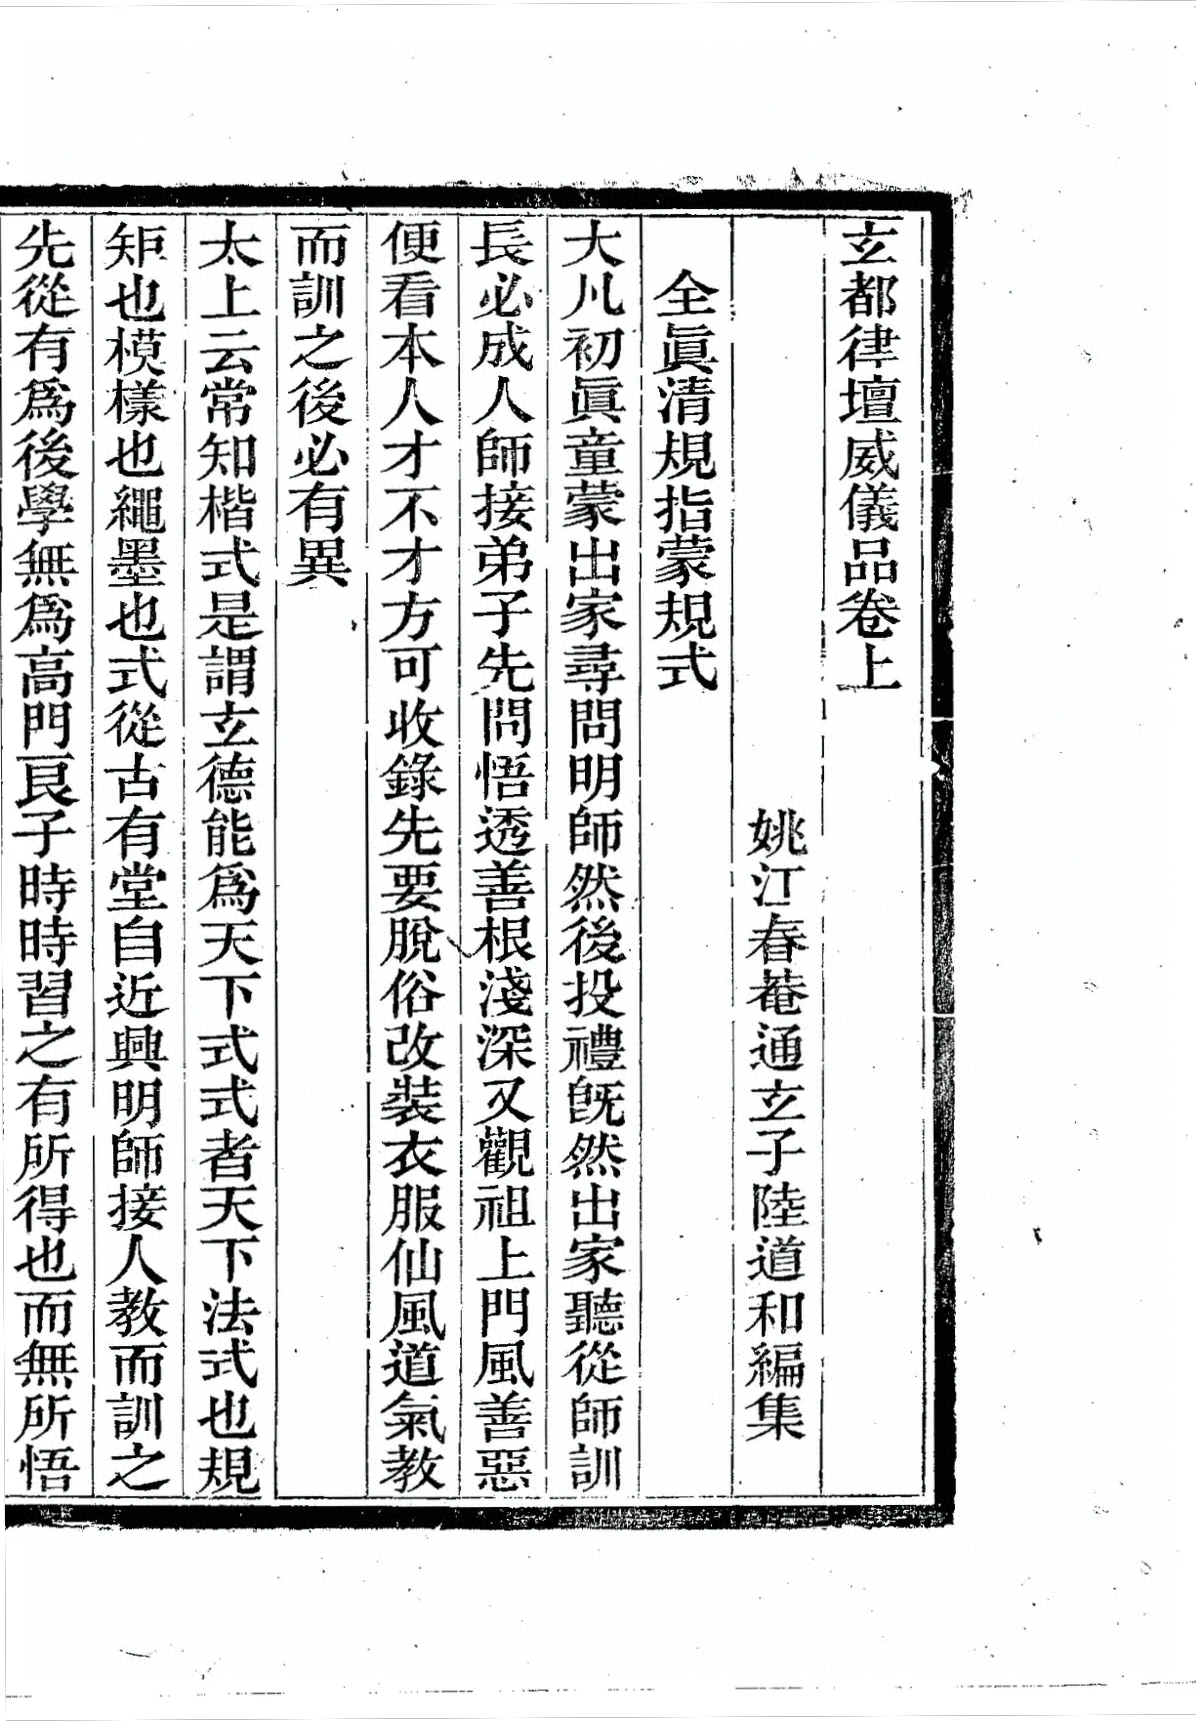 玄都律壇威儀品卷上
姚江春菴通玄子陸道和編集
全眞清規指蒙規式
大凡初眞童蒙出家尋問明師然後投禮旣然出家聽從師訓
長必成人師接弟子先問悟透善根淺深又觀祖上門風善惡
便看本人才不才方可收錄先要脫俗改裝衣服仙風道氣教
而訓之後必有異
太上云常知楷式是謂玄德能爲天下式式者天下法式也規
矩也模樣也繩墨也式從古有堂自近興明師接人教而訓之
先從有爲後學無爲高門良子時時習之有所得也而無所悟